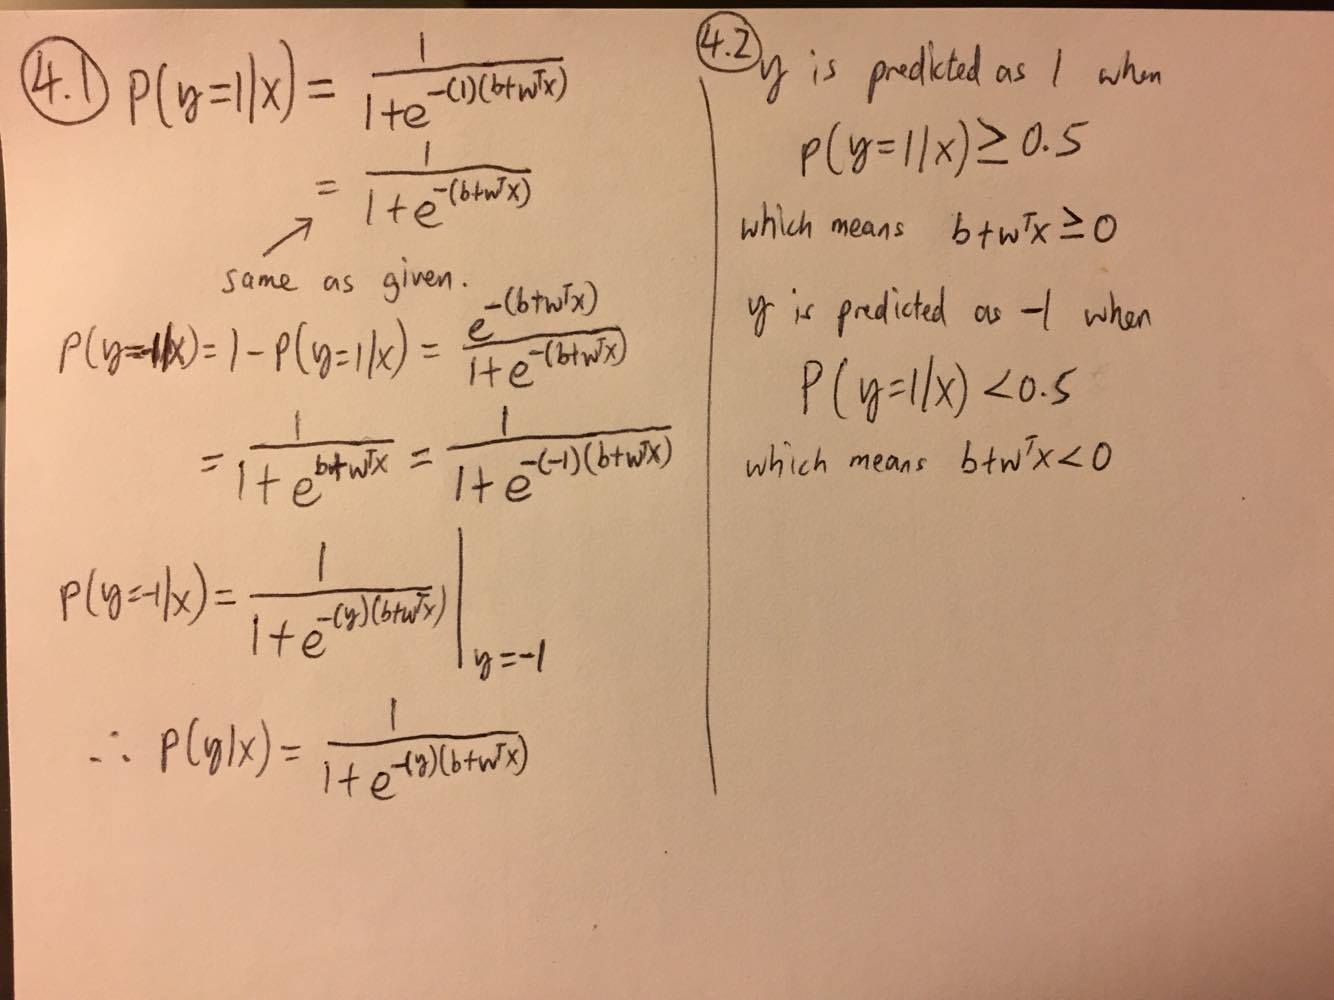 4.1 P(y=1|x) = 1/(1+e^{-(1)(b+wᵀx)})
= 1/(1+e^{-(b+wᵀx)})
same as given.
P(y=-1|x) = 1 - P(y=1|x) = e^{-(b+wᵀx)}/(1+e^{-(b+wᵀx)})
= 1/(1+e^{b+wᵀx}) = 1/(1+e^{-(-1)(b+wᵀx)})
P(y=-1|x) = 1/(1+e^{-(y)(b+wᵀx)}) |_{y=-1}
∴ P(y|x) = 1/(1+e^{-(y)(b+wᵀx)})
4.2 y is predicted as 1 when
P(y=1|x) ≥ 0.5
which means b+wᵀx ≥ 0
y is predicted as -1 when
P(y=1|x) < 0.5
which means b+wᵀx < 0